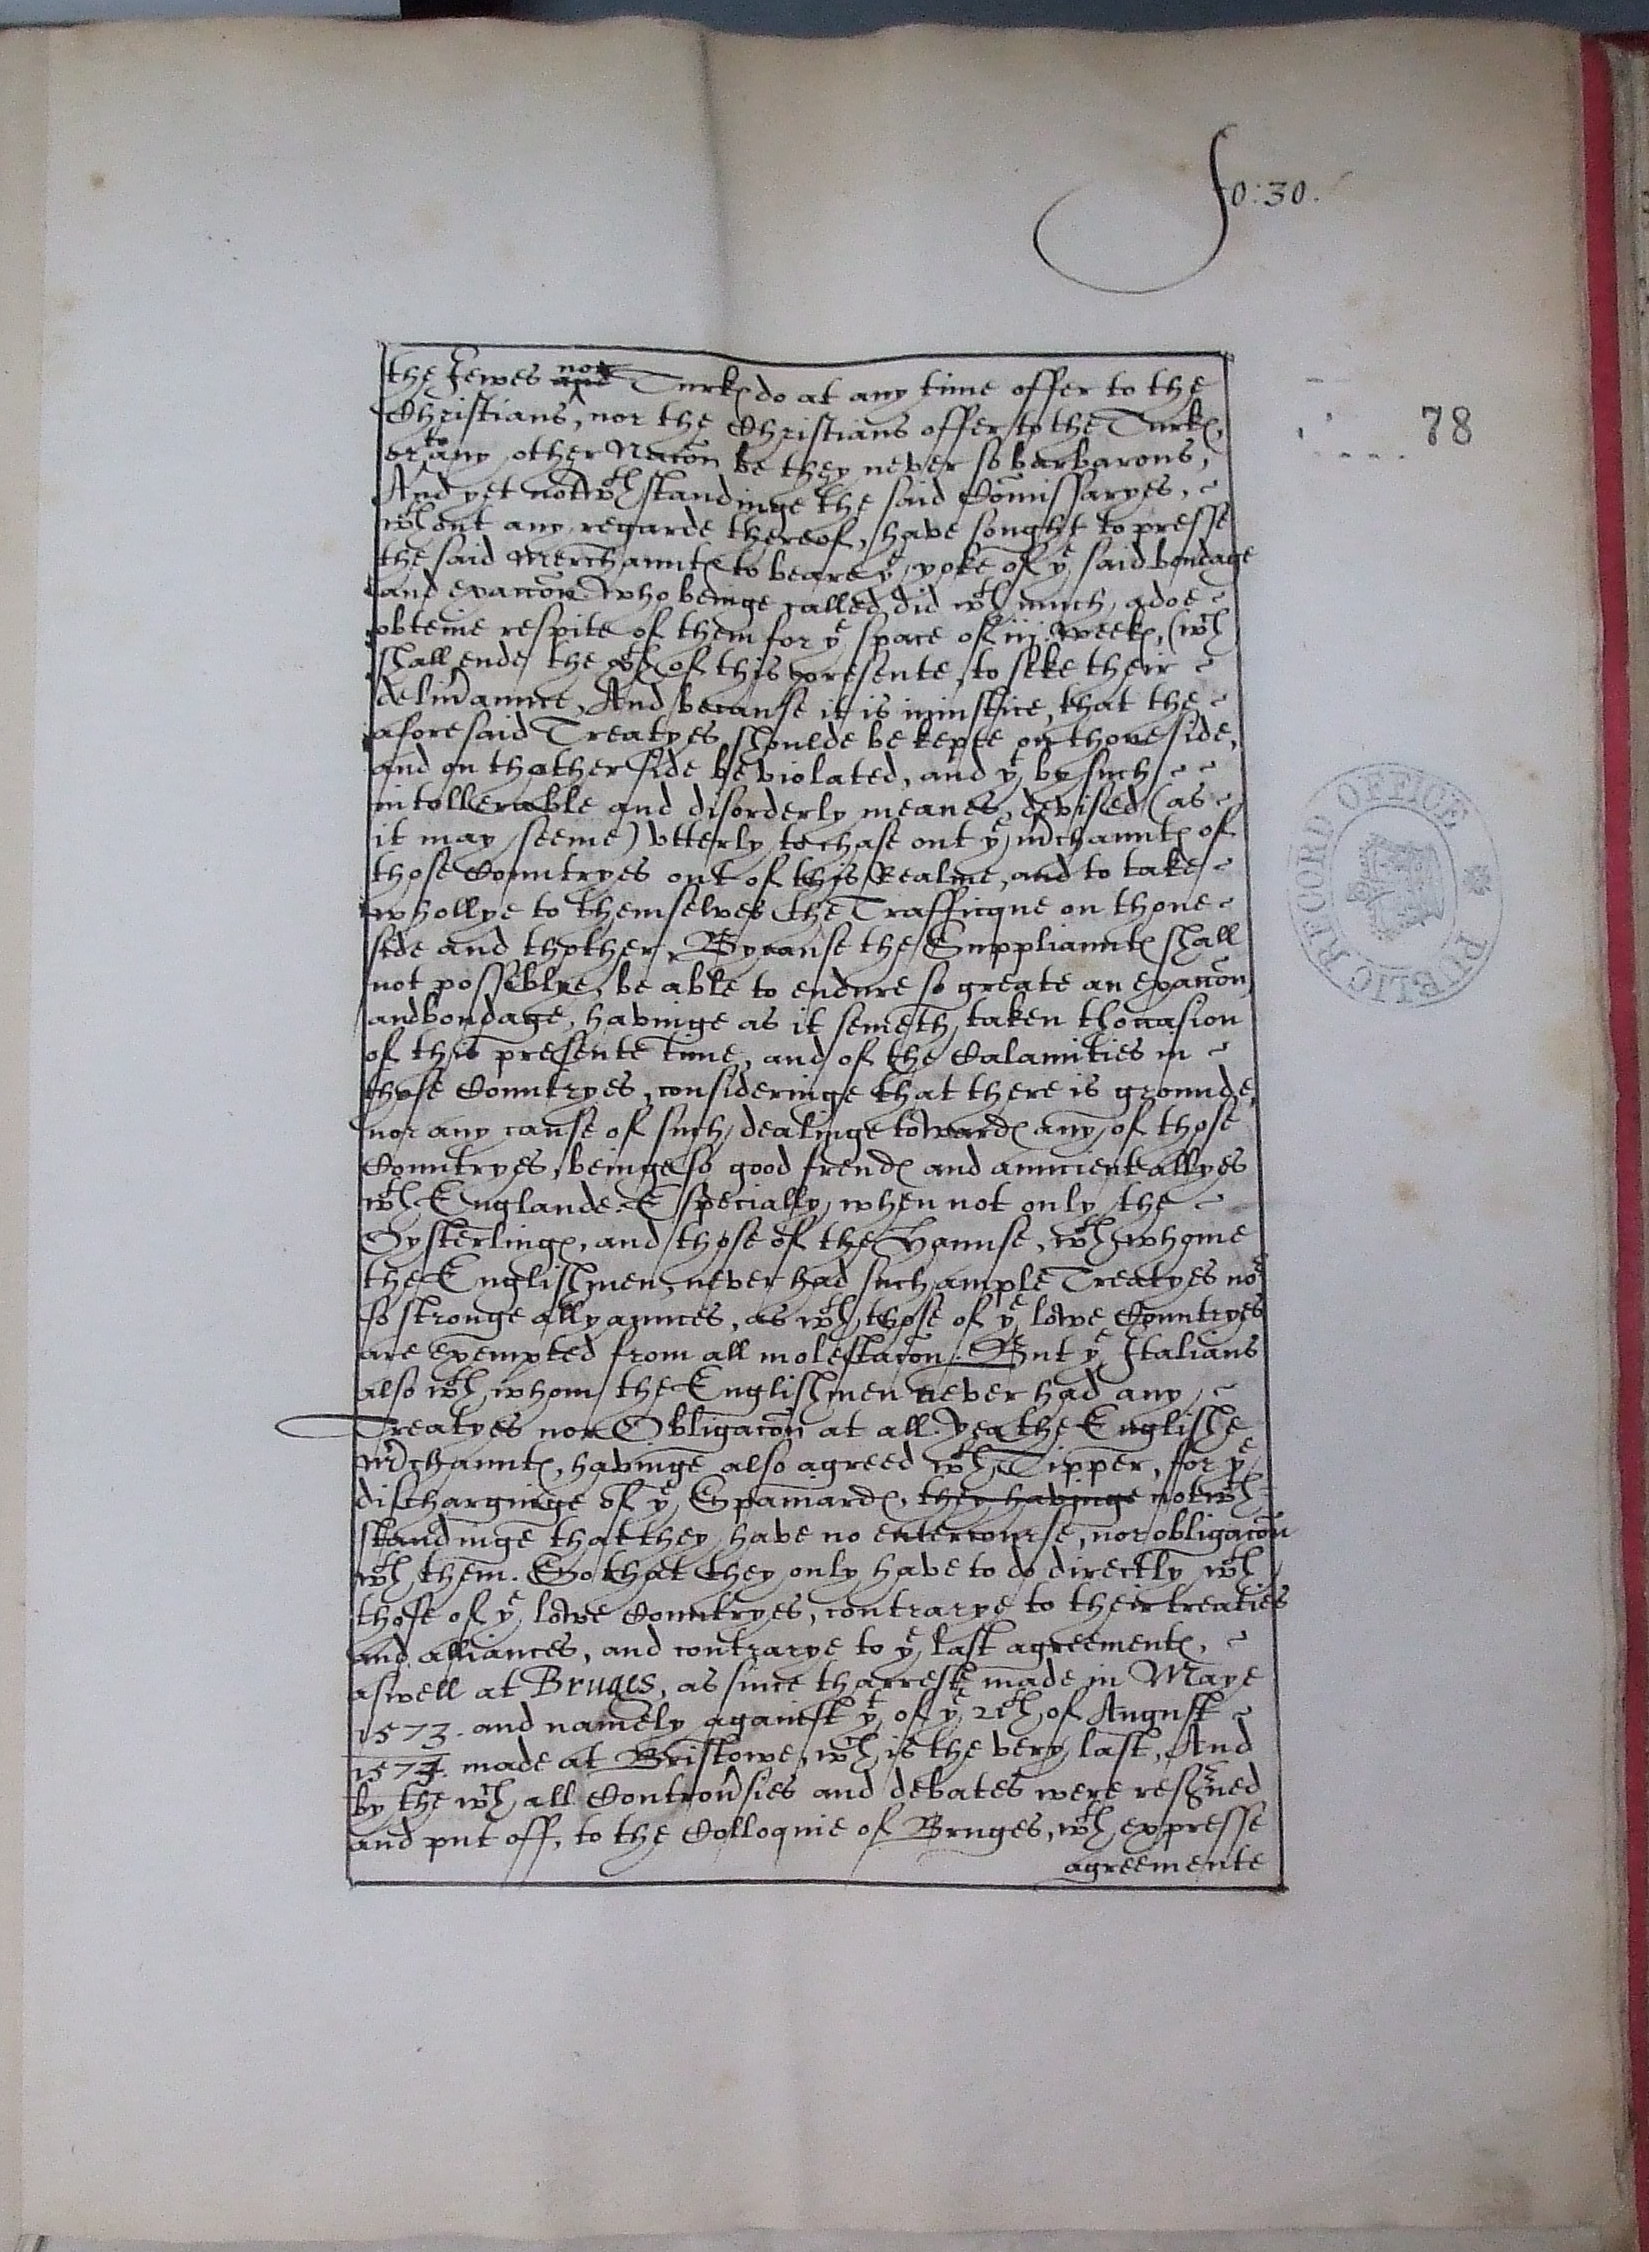 fo: 30.
78
the Jewes nor and Turkes do at any time offer to the
Christians, nor the Christians offer to the Turkes,
or to any other Nacōn be they never so barbarous,
And yet notwth standinge the said Comissaryes,
wthout any regarde thereof, have sought to presse
the said Merchauntes to beare ye yoke of ye said bondage
and exaccōn who beinge called did wth much adoe
obteine respite of them for ye space of iij weekes, (wch
shall ende the of this presente, to seke their
deliv'aunce, And because it is iniustice, that the
aforesaid Treatyes shoulde be kepte on thone side,
and on thother side be violated, and yt by such
intollerable and disorderly meanes, devised (as
it may seeme) vtterly to chase out ye m'chauntes of
those Countryes out of this Realme, and to take
whollye to themselves the Trafficque on thone
side and thother, Bycause the Suppliauntes shall
not possiblye, be able to endure so greate an exaccōn,
and bondage, havinge as it semeth, taken thoccasion
of this presente time, and of the Calamities in
those Countryes, consideringe that there is grounde,
nor any cause of such dealinge towardes any of those
Countryes, beinge so good frendes and auncient allyes
wth Englande. Especially, when not only the
Oysterlinges, and those of the Haunse, wth whome
the Englishmen, never had such ample Treatyes nor
so stronge allyaunces, as wth those of ye lowe Countryes
are exempted from all molestacōn. But ye Italians
also wth whom the Englishmen never had any
Treatyes nor Obligacōn at all. Yea the Englishe
m'chauntes, havinge also agreed wth Tipper, for ye
discharginge of ye Spaniardes, they havinge notwth
standinge that they have no entercourse, nor obligacōn
wth them. So that they only have to do directly wth
those of ye lowe Countryes, contrarye to their treaties
and alliances, and contrarye to ye last agreementes,
aswell at Bruges, as since tharreste made in Maye
1573. and namely against yt of ye 21th of August
1574. made at Bristowe, wch is the very last, And
by the wch all Controu'sies and debates were
and put off, to the Colloquie of Bruges, wth expresse
agreemente
PUBLIC RECORD OFFICE